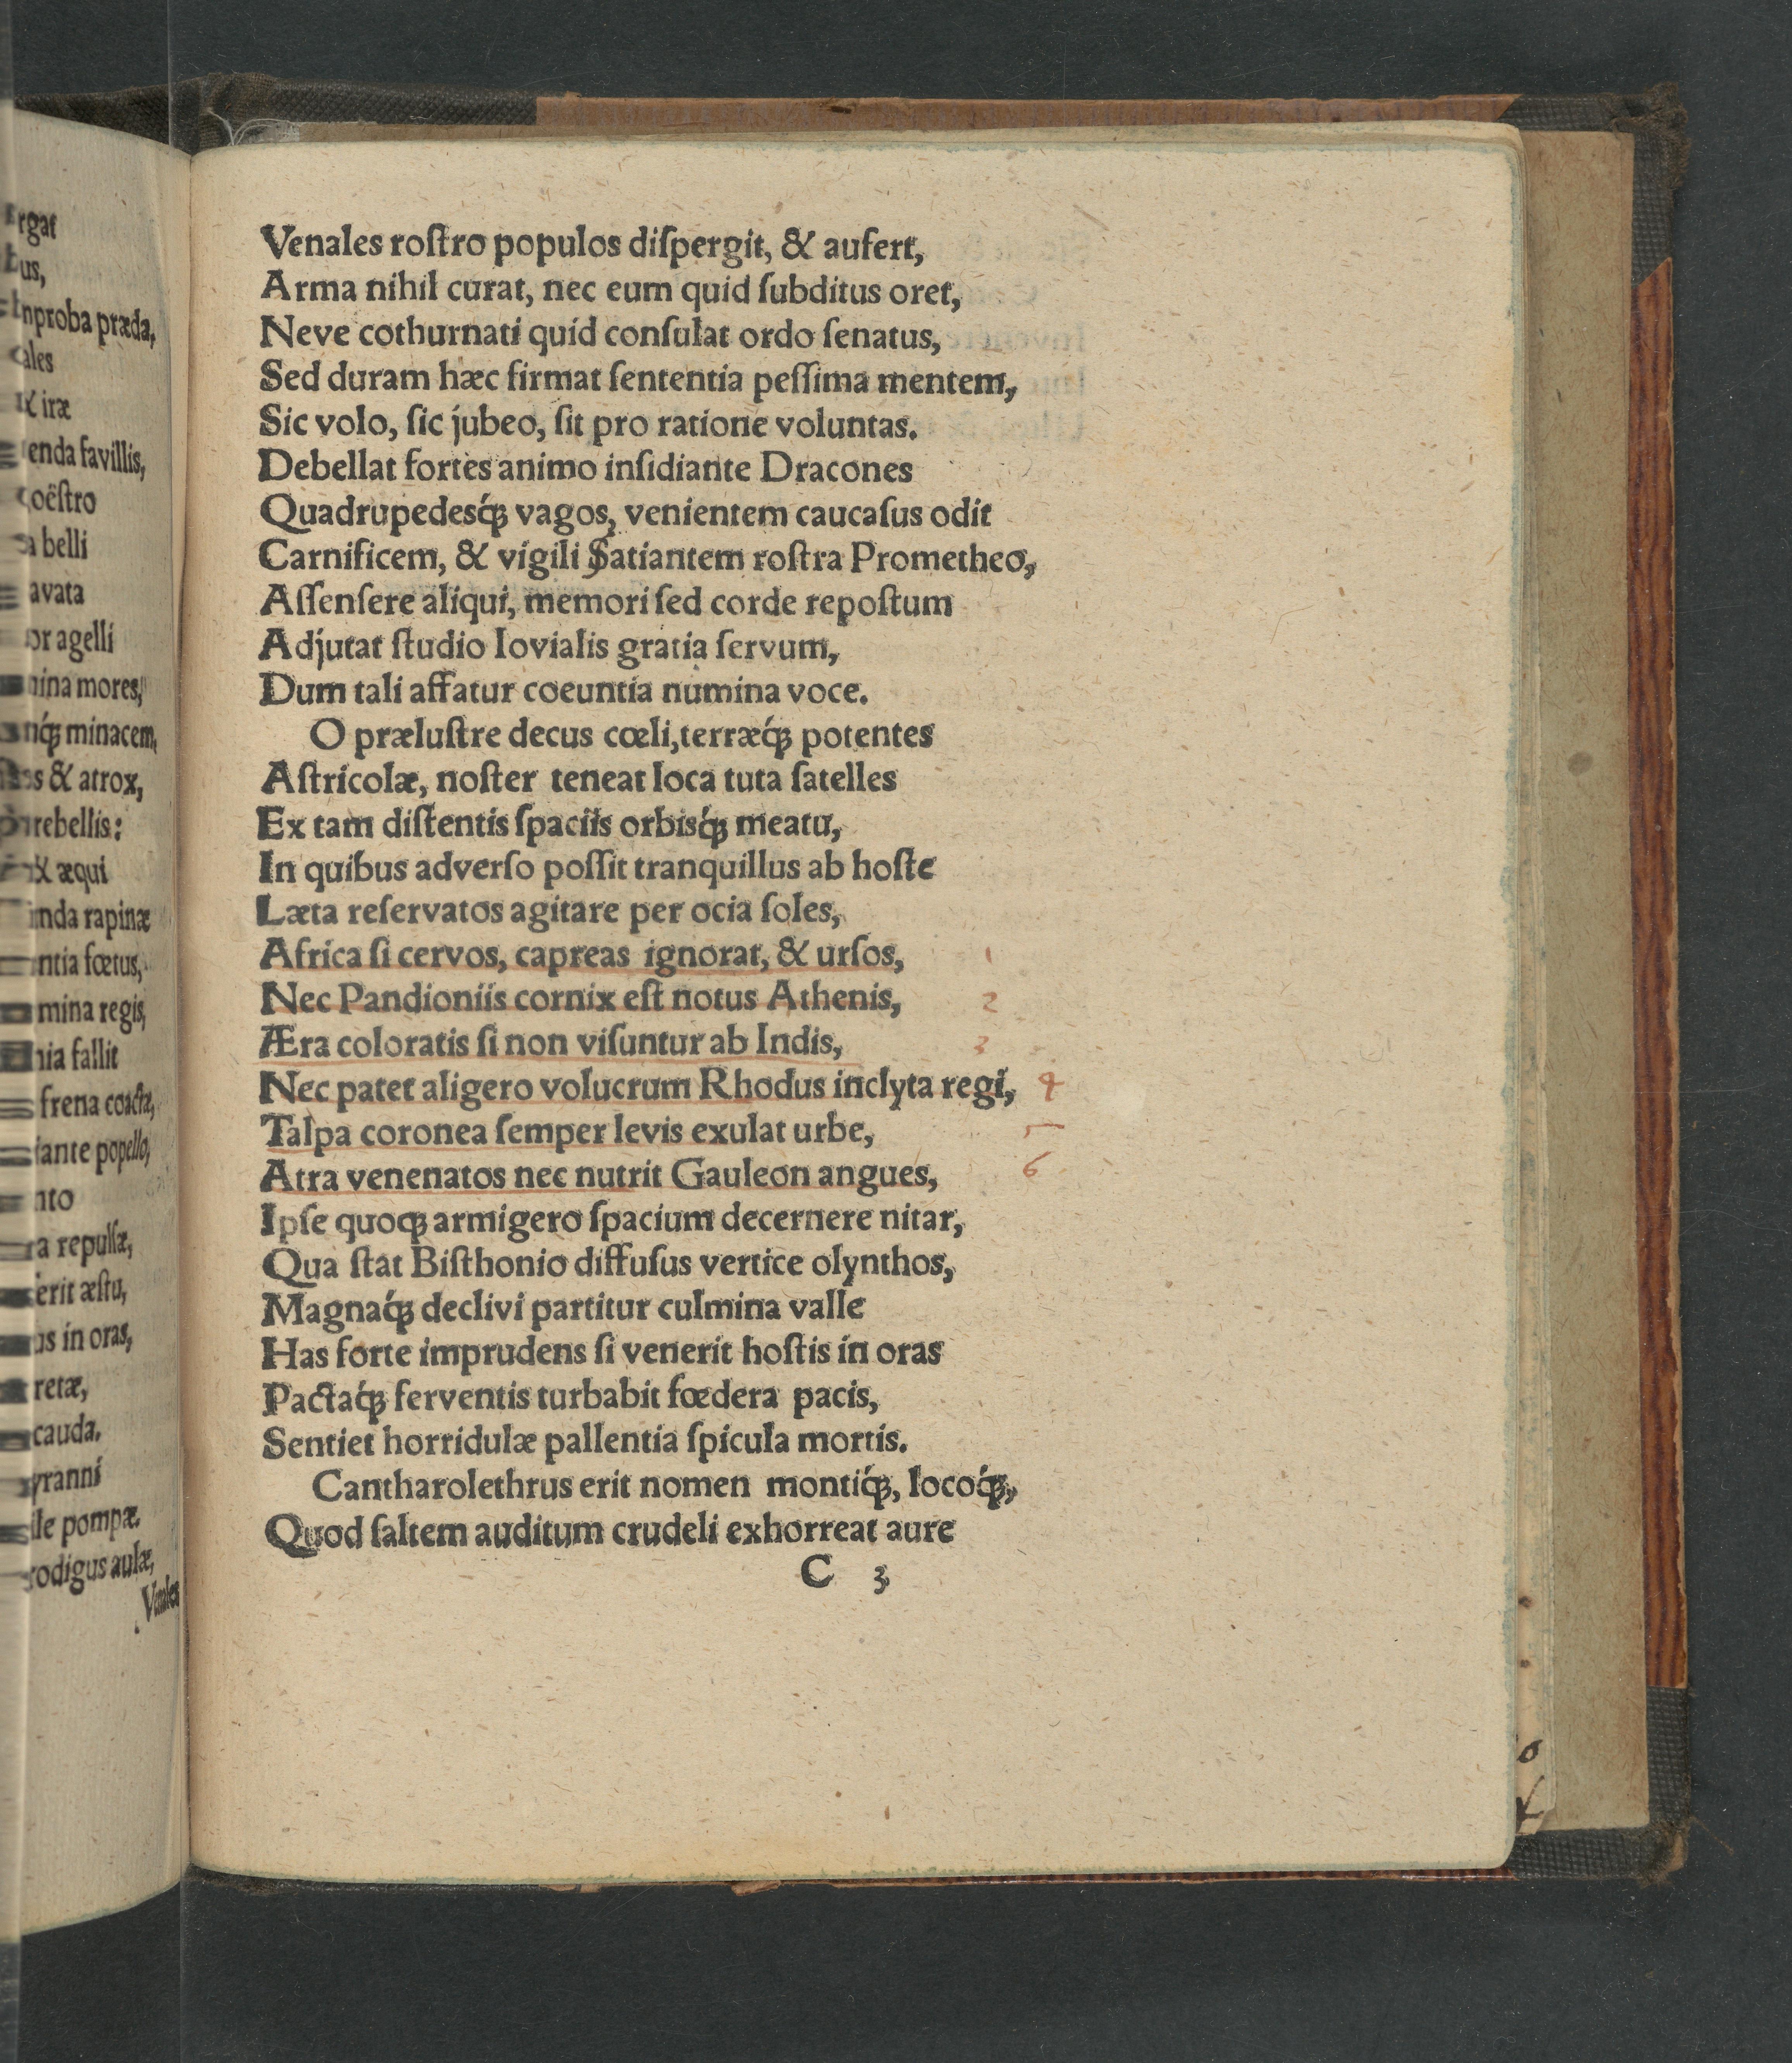 rgat
us,
nproba præda,
ales
& iræ
enda favillis,
oëſtro
belli
avata
or agelli
mina mores,
nq́ꝫ minacem,
os & atrox,
rebellis:
& æqui
nda rapinæ
ntia fœtus,
mina regis,
nia fallit
frena coacta,
iante popello,
nto
ra repulſæ,
erit æſtu,
us in oras,
retæ,
cauda.
yranni
ile pompæ.
rodigus aulæ,
Venales
Venales roſtro populos diſpergit, & aufert,
Arma nihil curat, nec eum quid ſubditus oret,
Neve cothurnati quid conſulat ordo ſenatus,
Sed duram hæc firmat ſententia peſſima mentem,
Sic volo, ſic jubeo, ſit pro ratione voluntas.
Debellat fortes animo inſidiante Dracones
Quadrupedesq́ꝫ vagos, venientem caucaſus odit
Carnificem, & vigili Satiantem roſtra Prometheo,
Aſſenſere aliqui, memori ſed corde repoſtum
Adjutat ſtudio Iovialis gratia ſervum,
Dum tali affatur coeuntia numina voce.
O præluſtre decus cœli,terræq́ꝫ potentes
Aſtricolæ, noſter teneat loca tuta ſatelles
Ex tam diſtentis ſpaciis orbisq́ꝫ meatu,
In quibus adverſo poſſit tranquillus ab hoſte
Læta reſervatos agitare per ocia ſoles,
Africa ſi cervos, capreas ignorat, & urſos, 1
Nec Pandioniis cornix eſt notus Athenis, 2
Æra coloratis ſi non viſuntur ab Indis, 3
Nec patet aligero volucrum Rhodus inclyta regi, 4
Talpa coronea ſemper levis exulat urbe, 5
Atra venenatos nec nutrit Gauleon angues, 6
Ipſe quoqꝫ armigero ſpacium decernere nitar,
Qua ſtat Biſthonio diffuſus vertice olynthos,
Magnaq́ꝫ declivi partitur culmina valle
Has forte imprudens ſi venerit hoſtis in oras
Pactaq́ꝫ ferventis turbabit fœdera pacis,
Sentiet horridulæ pallentia ſpicula mortis.
Cantharolethrus erit nomen montiq́ꝫ, locoq́ꝫ,
Quod ſaltem auditum crudeli exhorreat aure
C 3